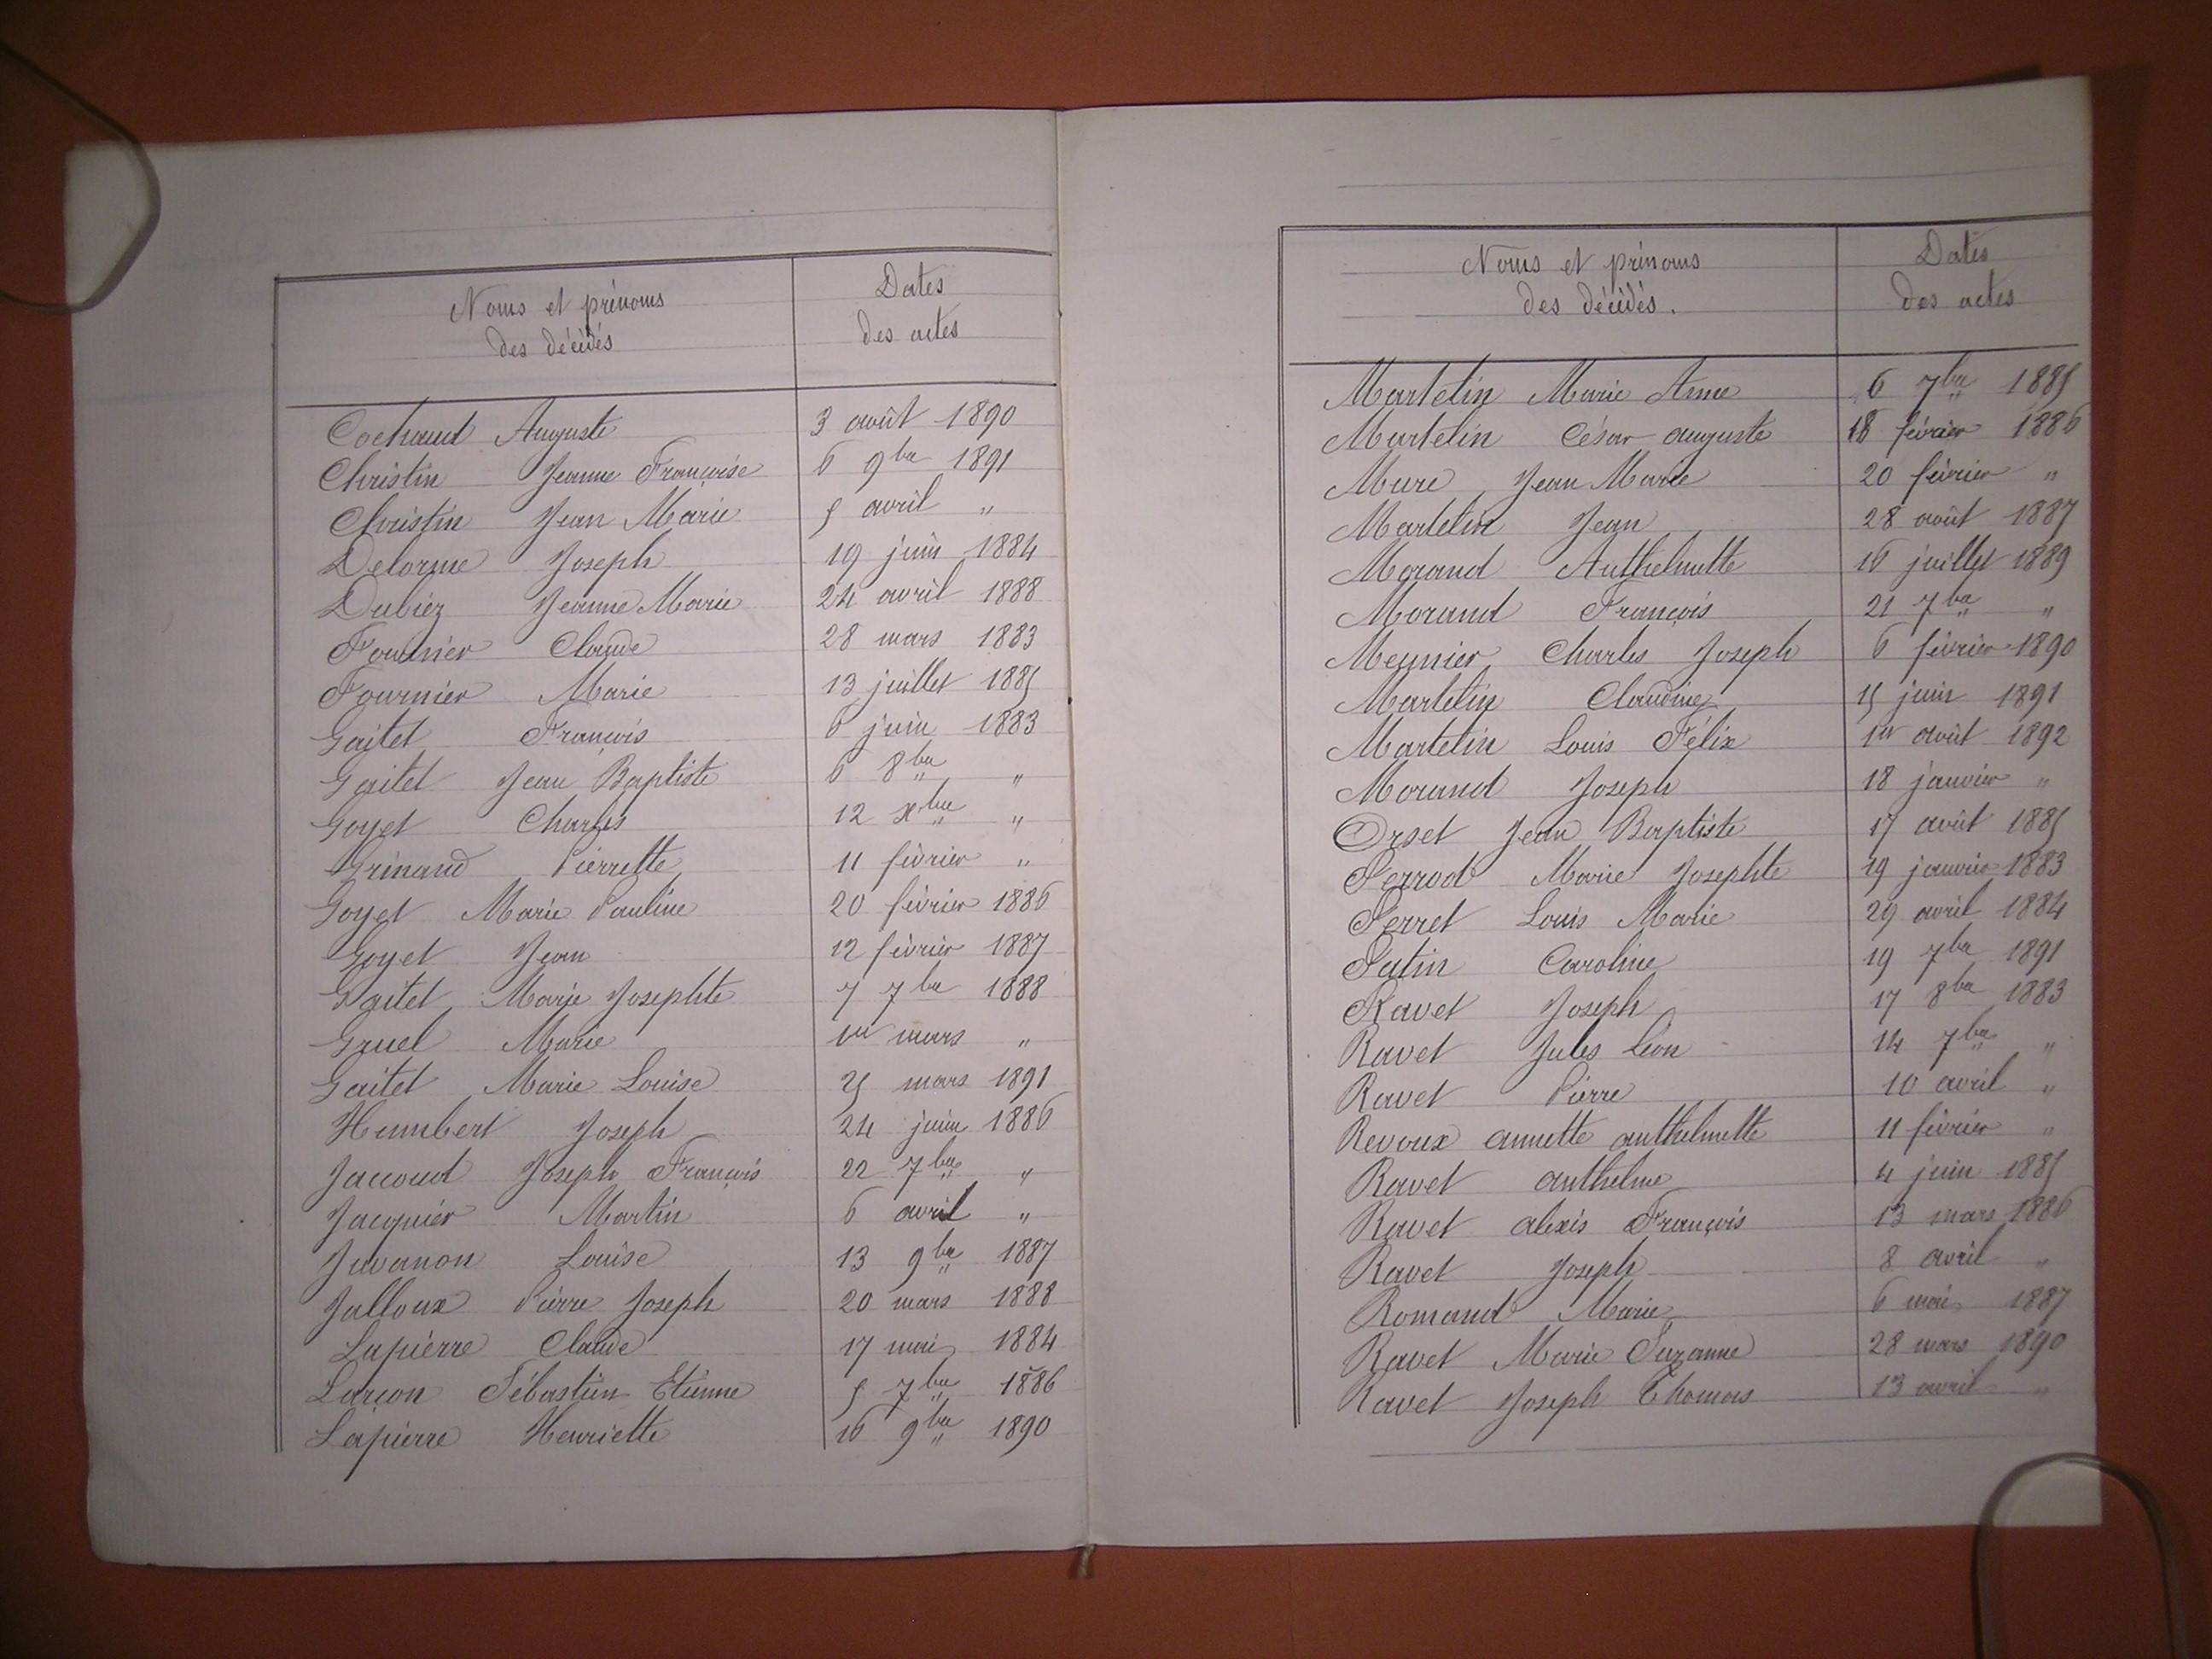 Noms et prénoms
des décédés
Dates
des actes
Cochaud Auguste 3 août 1890
Christin Jeanne Françoise 6 9bre 1891
Christin Jean Marie 5 avril "
Delorme Joseph 19 juin 1884
Dubiez Jeanne Marie 24 avril 1888
Fournier Claude 28 mars 1883
Fournier Marie 13 juillet 1885
Gaitet François 6 juin 1883
Gaitet Jean Baptiste 6 8bre "
Goyet Charles 12 xbre "
Grinand Pierrette 11 février "
Goyet Marie Pauline 20 février 1886
Goyet Jean 12 février 1887
Gaitet Marie Josephte 7 7bre 1888
Gruel Marie 1er mars "
Gaitet Marie Louise 25 mars 1891
Humbert Joseph 24 juin 1886
Jaccoud Joseph François 22 7bre "
Jacquier Martin 6 avril "
Juvanon Louise 13 9bre 1887
Jalloux Pierre Joseph 20 mars 1888
Lapierre Claude 17 mai 1884
Larçon Sébastien Etienne 5 7bre 1886
Lapierre Henriette 16 9bre 1890
Noms et prénoms
des décédés.
Dates
des actes
Martelin Marie Anne 6 7bre 1885
Martelin César auguste 18 février 1886
Mure Jean Marie 20 février "
Martelin Jean 28 août 1887
Morand Anthelmette 16 juillet 1889
Morand François 21 7bre "
Meunier Charles Joseph 6 février 1890
Martelin Claudine 15 juin 1891
Martelin Louis Félix 1er août 1892
Morand Joseph 18 janvier "
Orset Jean Baptiste 17 août 1885
Perrod Marie Josephte 19 janvier 1883
Perret Louis Marie 29 avril 1884
Patin Caroline 19 7bre 1891
Ravet Joseph 17 8bre 1883
Ravet Jules Léon 14 7bre "
Ravet Pierre 10 avril "
Revoux annette anthelmette 11 février "
Ravet anthelme 4 juin 1885
Ravet alexis François 13 mars 1886
Ravet Joseph 8 avril "
Romand Marie 6 mai 1887
Ravet Marie Suzanne 28 mars 1890
Ravet Joseph Thomas 13 avril "